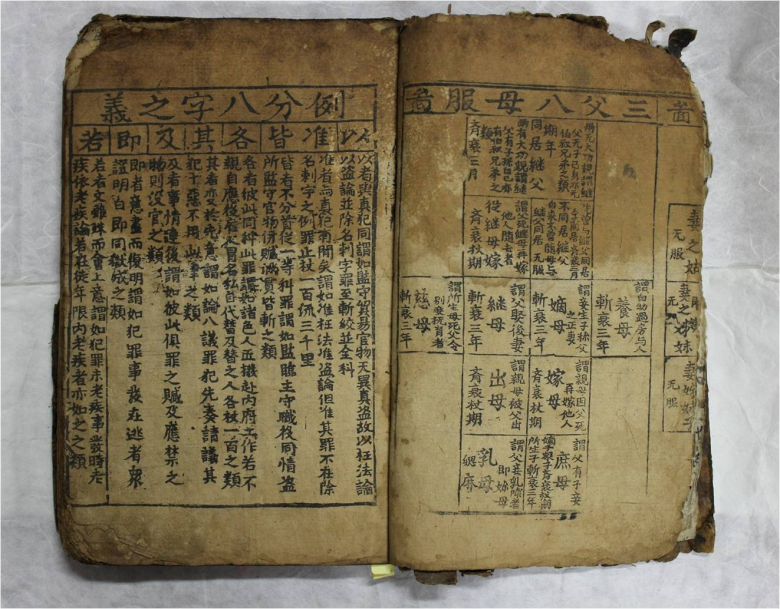 啚
妻之姑
无服
妻之姊妹
无服
无服
三父八母服啚
同居継父
期年
齊衰三月
不同居継父
無服
從継母嫁
齊衰杖期
謂自幼過房与人
養母
斬衰三年
謂妾生子称父之正妻
嫡母
斬衰三年
謂父娶後妻
継母
斬衰三年
謂所生母死父令別妾撫育者
慈母
斬衰三年
謂親母因父死再嫁他人
嫁母
齊衰杖期
謂親母被父出
出母
齊衰杖期
謂父有子妾
庶母
所生子斬衰三年
謂父妾乳哺者即妳母
乳母
緦麻
例分八字之義
以准皆各其及即若
以者與真犯同謂如監守貿易官物无異真盗故以枉法論
以盗論並除名刺字罪至斬絞並全科
准者與真犯有間矣謂如准枉法准盗論但准其罪不在除
名刺字之例罪止杖一百流三千里
皆者不分首從一等科罪謂如監臨主守職役同情盗
所監守官物併贓滿貫皆斬之類
各者彼此同科此罪謂如諸色人匠撥赴内府工作若不
親自應役雇人冒名私自代替及替之人各杖一百之類
其者变於先意謂如論八議罪犯先奏請議其
犯十惡不用此律之類
及者事情連後謂如彼此俱罪之贓及應禁之
物則没官之類
即者意盡而復明謂如犯罪事發在逃者衆
證明白即同獄成之類
若者文雖殊而會上意謂如犯罪未老疾事發時老
疾依老疾論若在徒年限内老疾者亦如之之類